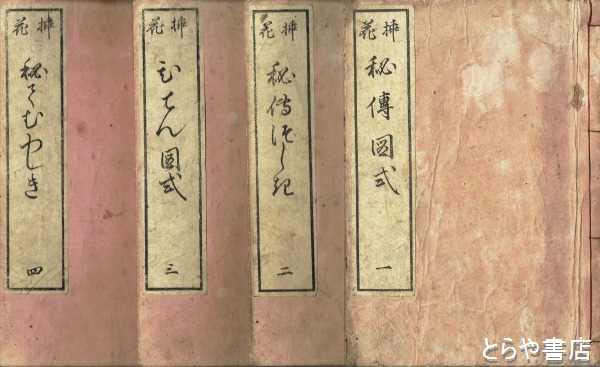 挿花
秘傳図式
一
挿花
秘傳津しき
二
挿花
ひてん図式
三
挿花
秘てむつしき
四
とらや書店